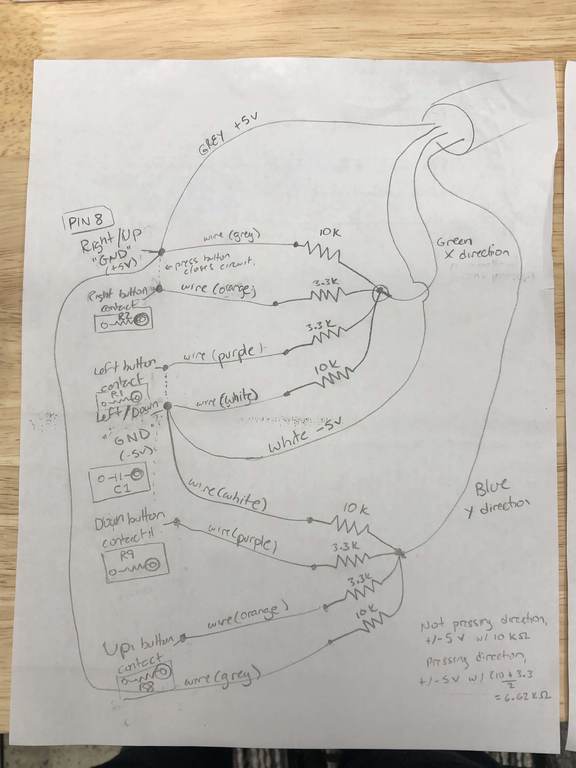 GREY +5V
PIN 8
Right/Up
"GND"
(+5V)
wire (grey)
10K
press button
closes circuit.
Green
X direction
Right button
contact
R2
wire (orange)
3.3K
3.3K
Left button
contact
R1
wire (purple)
10K
wire (white)
Left/Down
"GND"
(-5V)
White -5V
C1
wire (white)
10K
Blue
Y direction
Down button
contact
R9
wire (purple)
3.3K
3.3K
wire (orange)
10K
Up button
contact
R8
wire (grey)
Not pressing direction,
+/-5V w/ 10KΩ
Pressing direction,
+/-5V w/ (10+3.3
2
=6.62KΩ